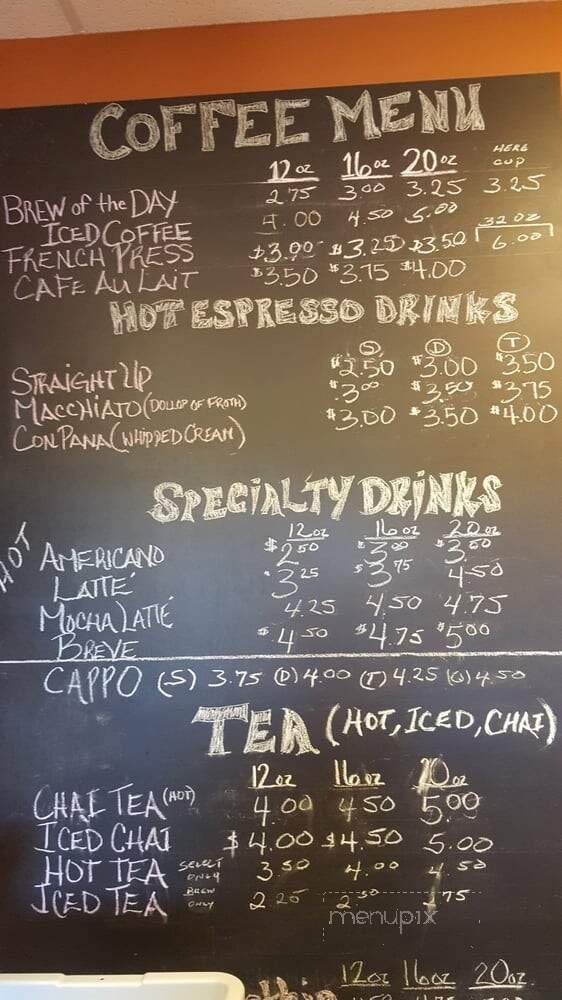 COFFEE MENU
12 oz 16 oz 20 oz HERE CUP
BREW of the DAY 2.75 3.00 3.25 3.25
ICED COFFEE 4.00 4.50 5.00 32 oz
FRENCH PRESS $3.00 $3.25 $3.50 6.00
CAFE AU LAIT $3.50 $3.75 $4.00
HOT ESPRESSO DRINKS
S D T
STRAIGHT UP $2.50 $3.00 $3.50
MACCHIATO (DOLLOP OF FROTH) $3.00 $3.50 $3.75
CON PANA (WHIPPED CREAM) $3.00 $3.50 $4.00
SPECIALTY DRINKS
HOT 12 oz 16 oz 20 oz
AMERICANO $2.50 $3.00 $3.50
LATTÉ 3.25 $3.75 4.50
MOCHA LATTÉ 4.25 4.50 4.75
BREVE $4.50 $4.75 $5.00
CAPPO (S) 3.75 (D) 4.00 (T) 4.25 (Q) 4.50
TEA (HOT, ICED, CHAI)
12 oz 16 oz 20 oz
CHAI TEA (HOT) 4.00 4.50 5.00
ICED CHAI $4.00 $4.50 5.00
HOT TEA SELECT ONLY 3.50 4.00 4.50
ICED TEA BREW ONLY 2.25 2.50 2.75
menupix
12 oz 16 oz 20 oz